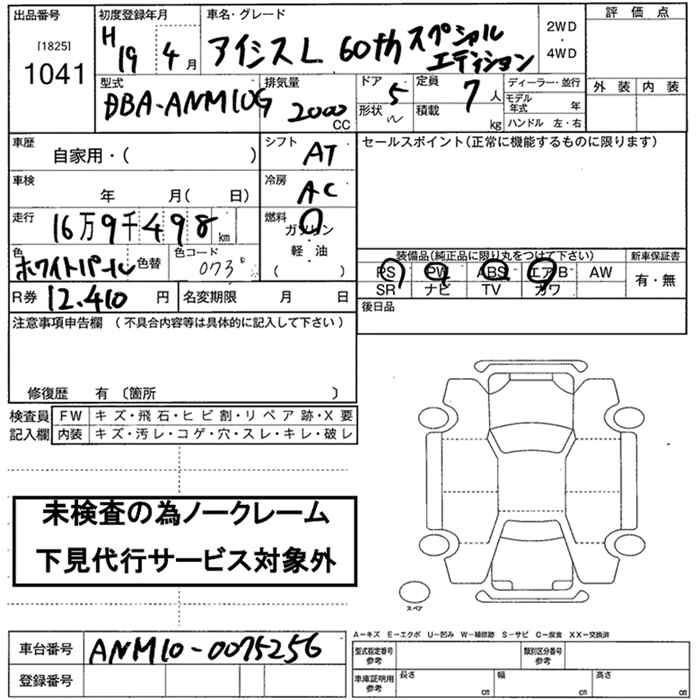 出品番号 初度登録年月 車名・グレード 2WD・4WD 評価点
[1825] 1041 H19 4月 アイシスL 60th スペシャルエディション
外装 内装
型式 排気量 ドア 5 定員 7人 ディーラー・並行
DBA-ANM10G 2000CC 形状 積載 kg モデル年式 年
ハンドル 左・右
車歴 シフト AT セールスポイント(正常に機能するものに限ります)
自家用・( )
車検 年 月( 日) 冷房 AC
走行 16万9千498km 燃料 ガソリン・軽油 ( )
色 ホワイトパール 色替 色コード 073
装備品(純正品に限り丸をつけて下さい) 新車保証書
PS PW ABS エアB AW 有・無
SR ナビ TV カワ
R券 12,410円 名変期限 月 日
後日品
注意事項申告欄 (不具合内容等は具体的に記入して下さい)
修復歴 有 〔箇所 〕
検査員 FW キズ・飛石・ヒビ割・リペア跡・X要
記入欄 内装 キズ・汚レ・コゲ・穴・スレ・キレ・破レ
未検査の為ノークレーム
下見代行サービス対象外
スペア
車台番号 ANM10-0075256
登録番号
A−キズ E−エクボ U−凹み W−補修跡 S−サビ C−腐食 XX−交換済
型式指定番号 参考 類別区分番号 参考
車庫証明用 参考 長さ cm 幅 cm 高さ cm